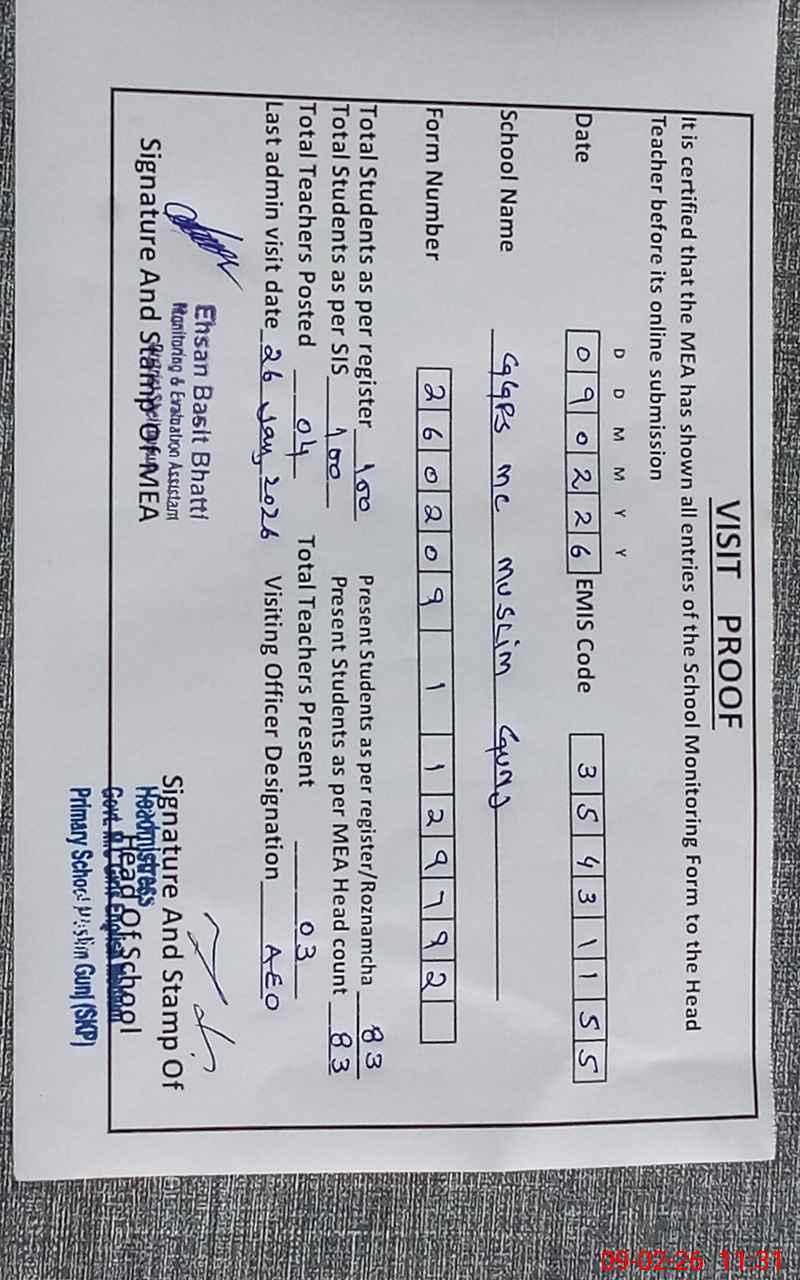 VISIT PROOF
It is certified that the MEA has shown all entries of the School Monitoring Form to the Head
Teacher before its online submission
D D M M Y Y
Date 090226 EMIS Code 35431155
School Name GGPS MC MUSLIM GUNJ
Form Number 2602091129792
Total Students as per register 100 Present Students as per register/Roznamcha 83
Total Students as per SIS 100 Present Students as per MEA Head count 83
Total Teachers Posted 04 Total Teachers Present 03
Last admin visit date 26 Jan, 2026 Visiting Officer Designation AEO
Ehsan Basit Bhatti
Monitoring & Evaluation Assistant
Signature And Stamp Of MEA
Signature And Stamp Of
Head Of School
Headmistress
Govt. M.C Girls English
Primary School Muslin Gunj (SKP)
09-02-26 11:31